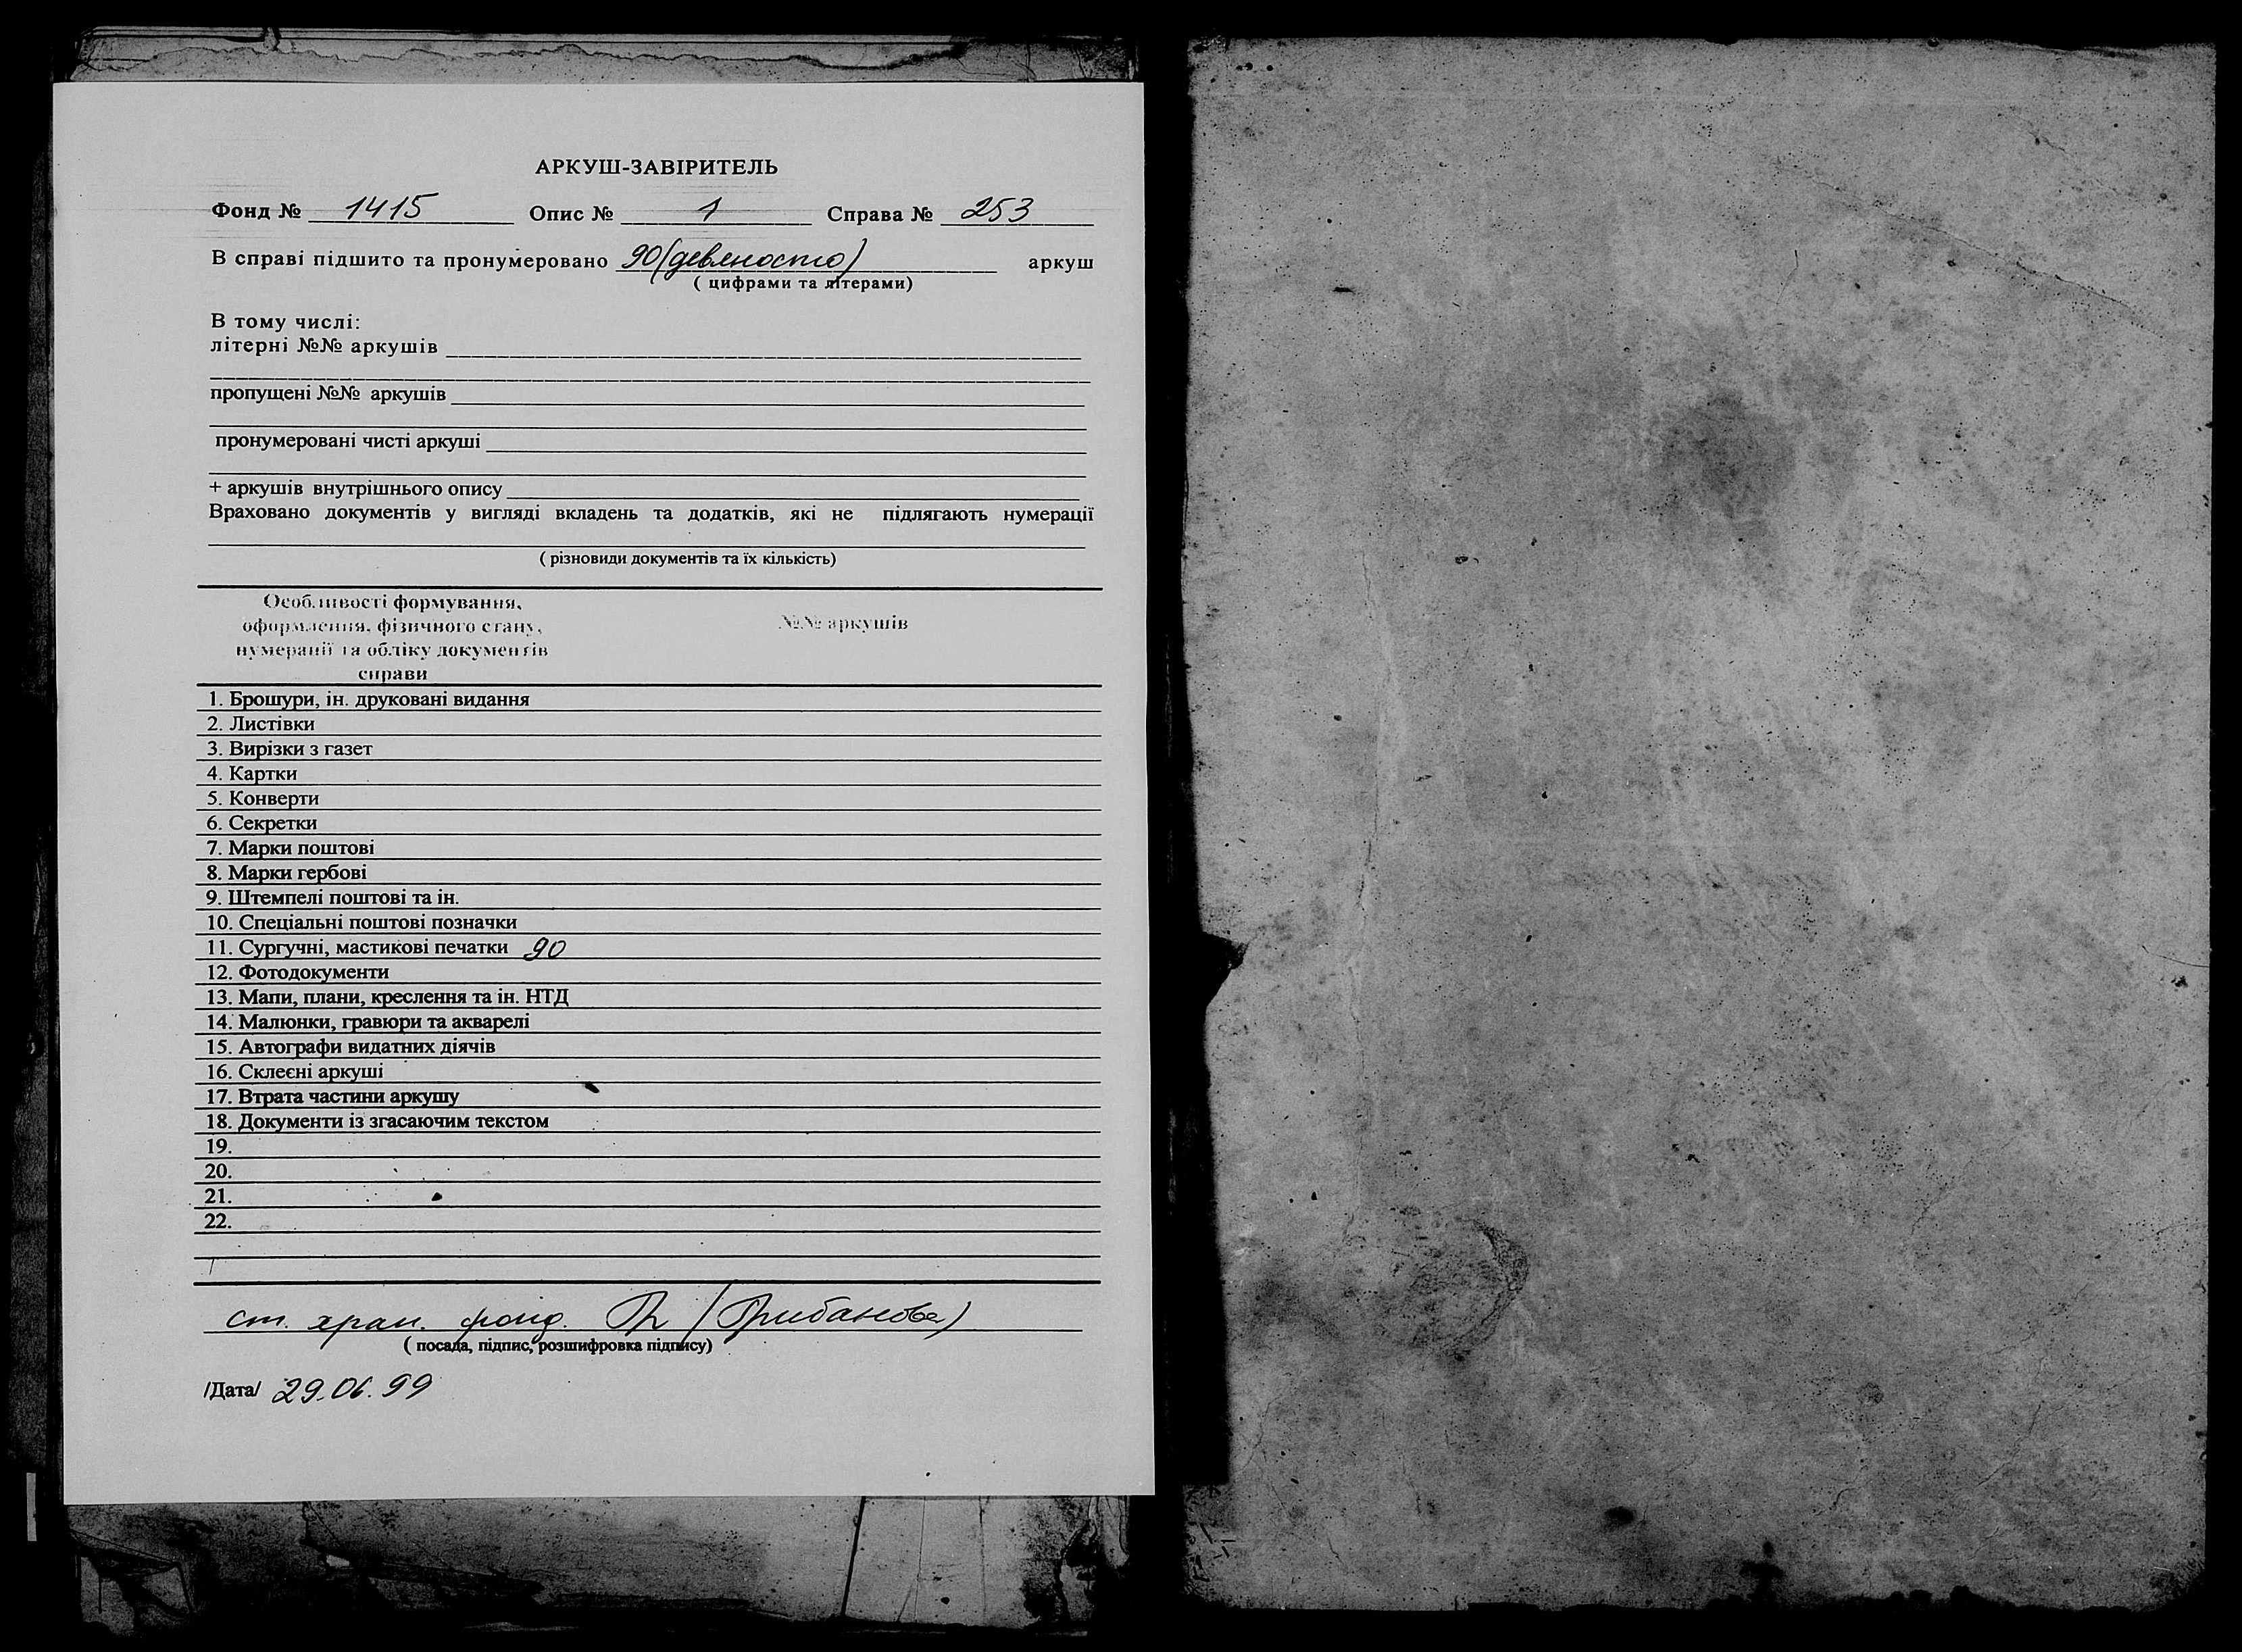 АРКУШ-ЗАВІРИТЕЛЬ
Фонд № 1415 Опис № 1 Справа № 253
В справі підшито та пронумеровано 90 (девяносто) аркуш
( цифрами та літерами)
В тому числі:
літерні №№ аркушів
пропущені №№ аркушів
пронумеровані чисті аркуші
+ аркушів внутрішнього опису
Враховано документів у вигляді вкладень та додатків, які не підлягають нумерації
( різновиди документів та їх кількість)
Особливості формування, оформлення, фізичного стану, нумерації та обліку документів справи
№№ аркушів
1. Брошури, ін. друковані видання
2. Листівки
3. Вирізки з газет
4. Картки
5. Конверти
6. Секретки
7. Марки поштові
8. Марки гербові
9. Штемпелі поштові та ін.
10. Спеціальні поштові позначки
11. Сургучні, мастикові печатки 90
12. Фотодокументи
13. Мапи, плани, креслення та ін. НТД
14. Малюнки, гравюри та акварелі
15. Автографи видатних діячів
16. Склеєні аркуші
17. Втрата частини аркушу
18. Документи із згасаючим текстом
19.
20.
21.
22.
ст. хран. фонд. (Грибанова)
( посада, підпис, розшифровка підпису)
/Дата/ 29.06.99